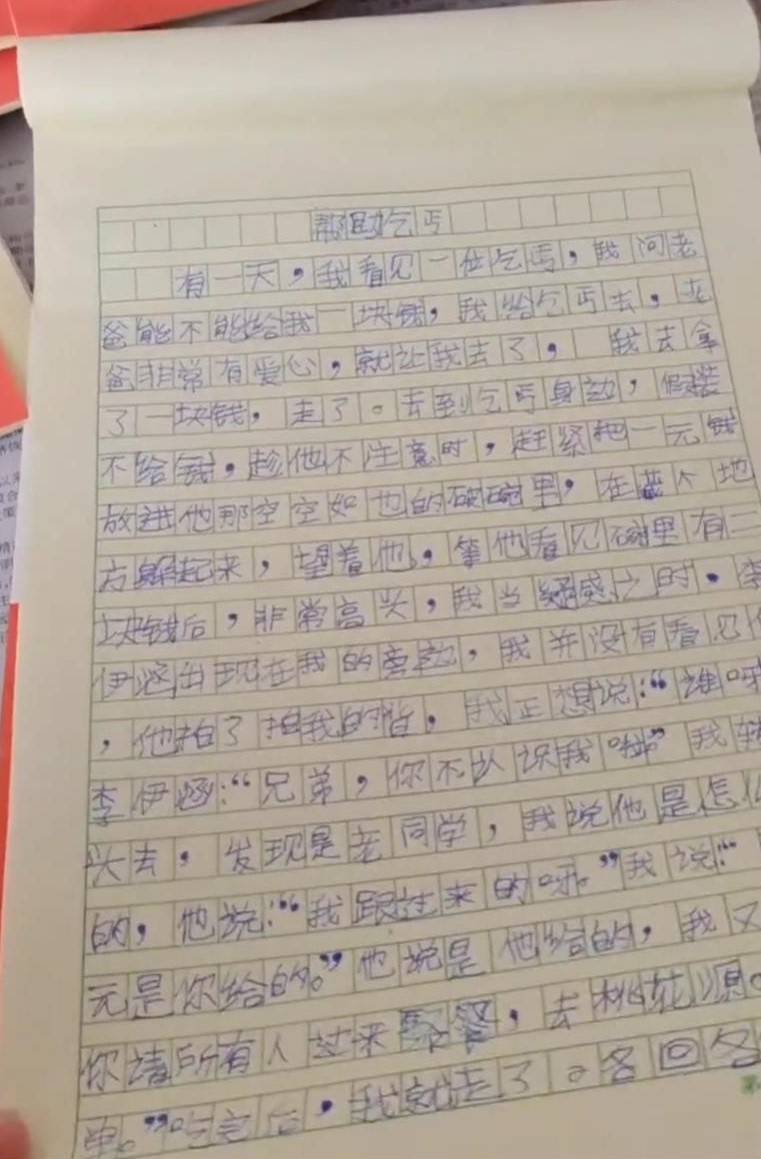 帮助乞丐
有一天，我看见一位乞丐，我问老
爸能不能给我一块钱，我给乞丐去，老
爸非常有爱心，就让我去了， 我去拿
了一块钱，走了。去到乞丐身边，假装
不给钱，趁他不注意时，赶紧把一元钱
放进他那空空如也的碗里，在 个地
方躲起来，望着他，等他看见碗里有二
块钱后，非常高兴，我当疑惑之时，李
伊涵出现在我的旁边，我并没有看见
，他拍了拍我的背，我正想说：“谁呀
李伊涵：“兄弟，你不认识我啦”我转
头去，发现是老同学，我说他是怎么
的，他说：“我跟过来的呀。”我说：“
元是你给的。”他说是他给的，我又
你请所有人过来聚餐，去桃花源。
单。”吃完后，我就走了。各回各